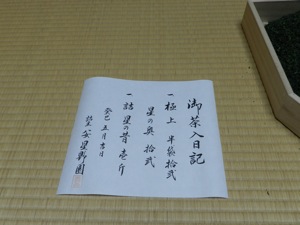 御茶入日記
一 極上 半袋拾弐
星の奥 拾弐
一 詰 星の昔 壱斤
癸巳 五月吉日
詰主 星野園